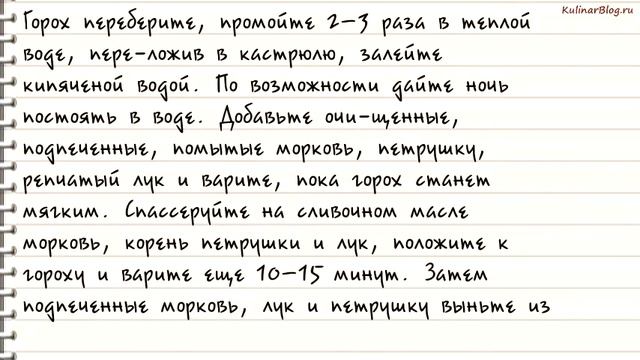 KulinarBlog.ru
Горох переберите, промойте 2–3 раза в теплой
воде, пере-ложив в кастрюлю, залейте
кипяченой водой. По возможности дайте ночь
постоять в воде. Добавьте очи-щенные,
подпеченные, помытые морковь, петрушку,
репчатый лук и варите, пока горох станет
мягким. Спассеруйте на сливочном масле
морковь, корень петрушки и лук, положите к
гороху и варите еще 10–15 минут. Затем
подпеченные морковь, лук и петрушку выньте из